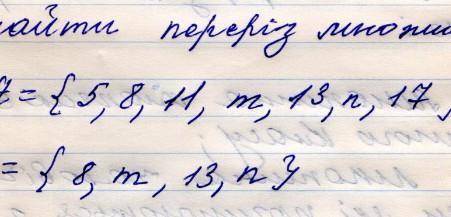 айти переріз множи
= { 5, 8, 11, m, 13, n, 17
= { 8, m, 13, n }